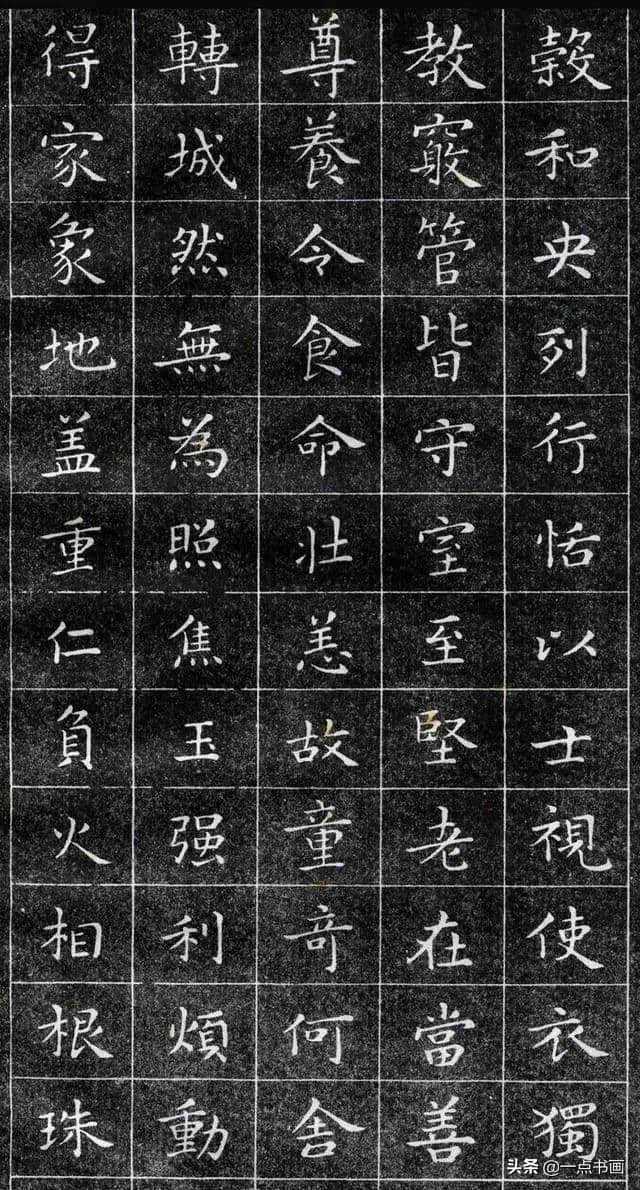 穀和央列行恬以士視使衣獨
教竅管皆守室至堅老在當善
尊養令食命壯恙故童奇何舍
轉城然無為照焦玉强利煩動
得家象地盖重仁負火相根珠
头条 @一点书画